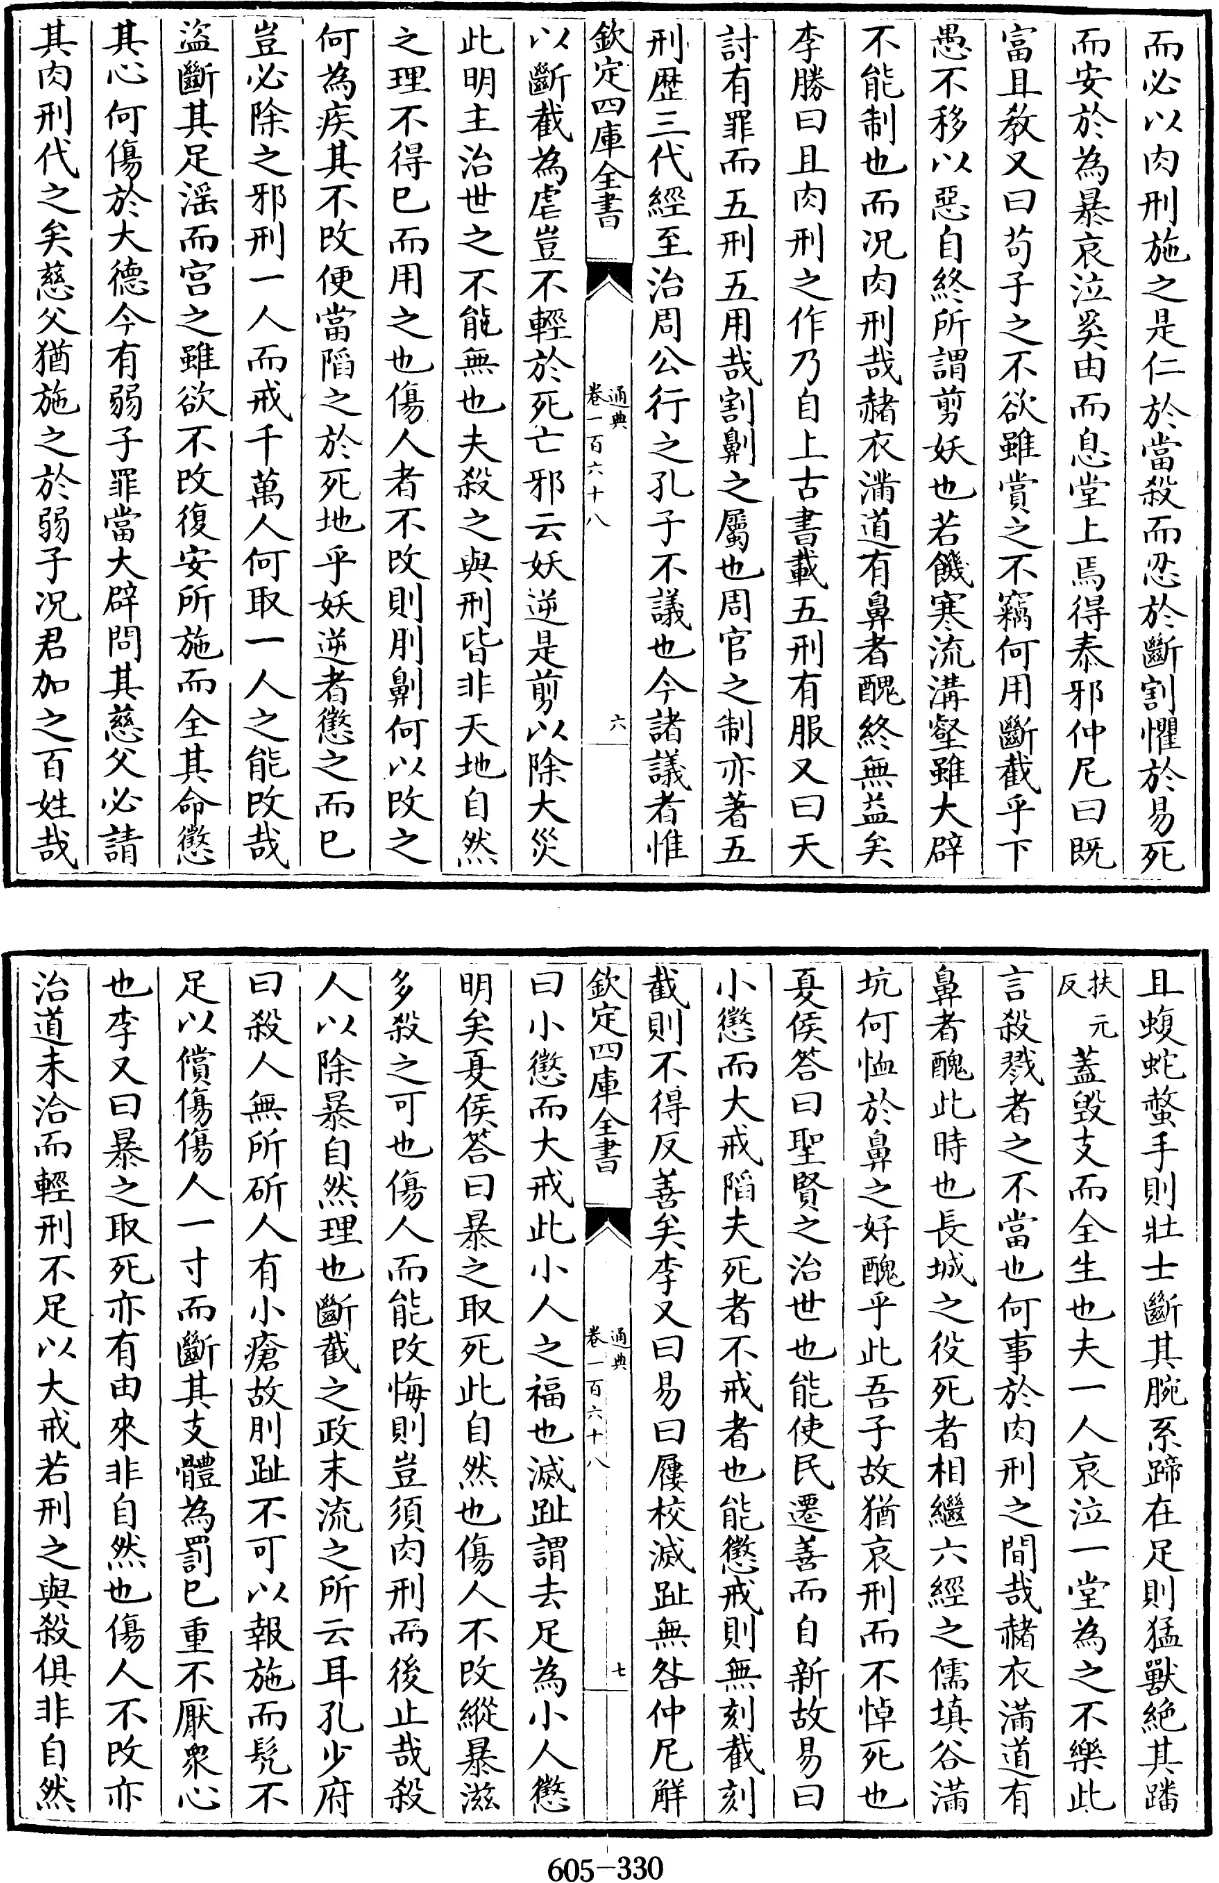 而必以肉刑施之是仁於當殺而忍於斷割懼於易死
而安於為暴哀泣奚由而息堂上焉得泰邪仲尼曰既
富且教又曰苟子之不欲雖賞之不竊何用斷截乎下
愚不移以惡自終所謂剪妖也若饑寒流溝壑雖大辟
不能制也而况肉刑哉赭衣滿道有鼻者醜終無益矣
李勝曰且肉刑之作乃自上古書載五刑有服又曰天
討有罪而五刑五用哉割劓之屬也周官之制亦著五
刑歴三代經至治周公行之孔子不議也今諸議者惟
欽定四庫全書
通典
卷一百六十八
六
以斷截為虐豈不輕於死亡邪云妖逆是剪以除大災
此明主治世之不能無也夫殺之與刑皆非天地自然
之理不得已而用之也傷人者不改則刖劓何以改之
何為疾其不改便當陷之於死地乎妖逆者懲之而已
豈必除之邪刑一人而戒千萬人何取一人之能改哉
盜斷其足淫而宮之雖欲不改復安所施而全其命懲
其心何傷於大德今有弱子罪當大辟問其慈父必請
其肉刑代之矣慈父猶施之於弱子况君加之百姓哉
且蝮蛇螫手則壯士斷其腕系蹄在足則猛獸絶其蹯
扶元
反
蓋毁支而全生也夫一人哀泣一堂為之不樂此
言殺戮者之不當也何事於肉刑之間哉赭衣滿道有
鼻者醜此時也長城之役死者相繼六經之儒填谷滿
坑何恤於鼻之好醜乎此吾子故猶哀刑而不悼死也
夏侯答曰聖賢之治世也能使民遷善而自新故易曰
小懲而大戒陷夫死者不戒者也能懲戒則無刻截刻
截則不得反善矣李又曰易曰屨校滅趾無咎仲尼解
欽定四庫全書
通典
卷一百六十八
七
曰小懲而大戒此小人之福也滅趾謂去足為小人懲
明矣夏侯答曰暴之取死此自然也傷人不改縱暴滋
多殺之可也傷人而能改悔則豈須肉刑而後止哉殺
人以除暴自然理也斷截之政末流之所云耳孔少府
曰殺人無所斫人有小瘡故刖趾不可以報施而髠不
足以償傷傷人一寸而斷其支體為罰已重不厭衆心
也李又曰暴之取死亦有由來非自然也傷人不改亦
治道未洽而輕刑不足以大戒若刑之與殺俱非自然
605-330